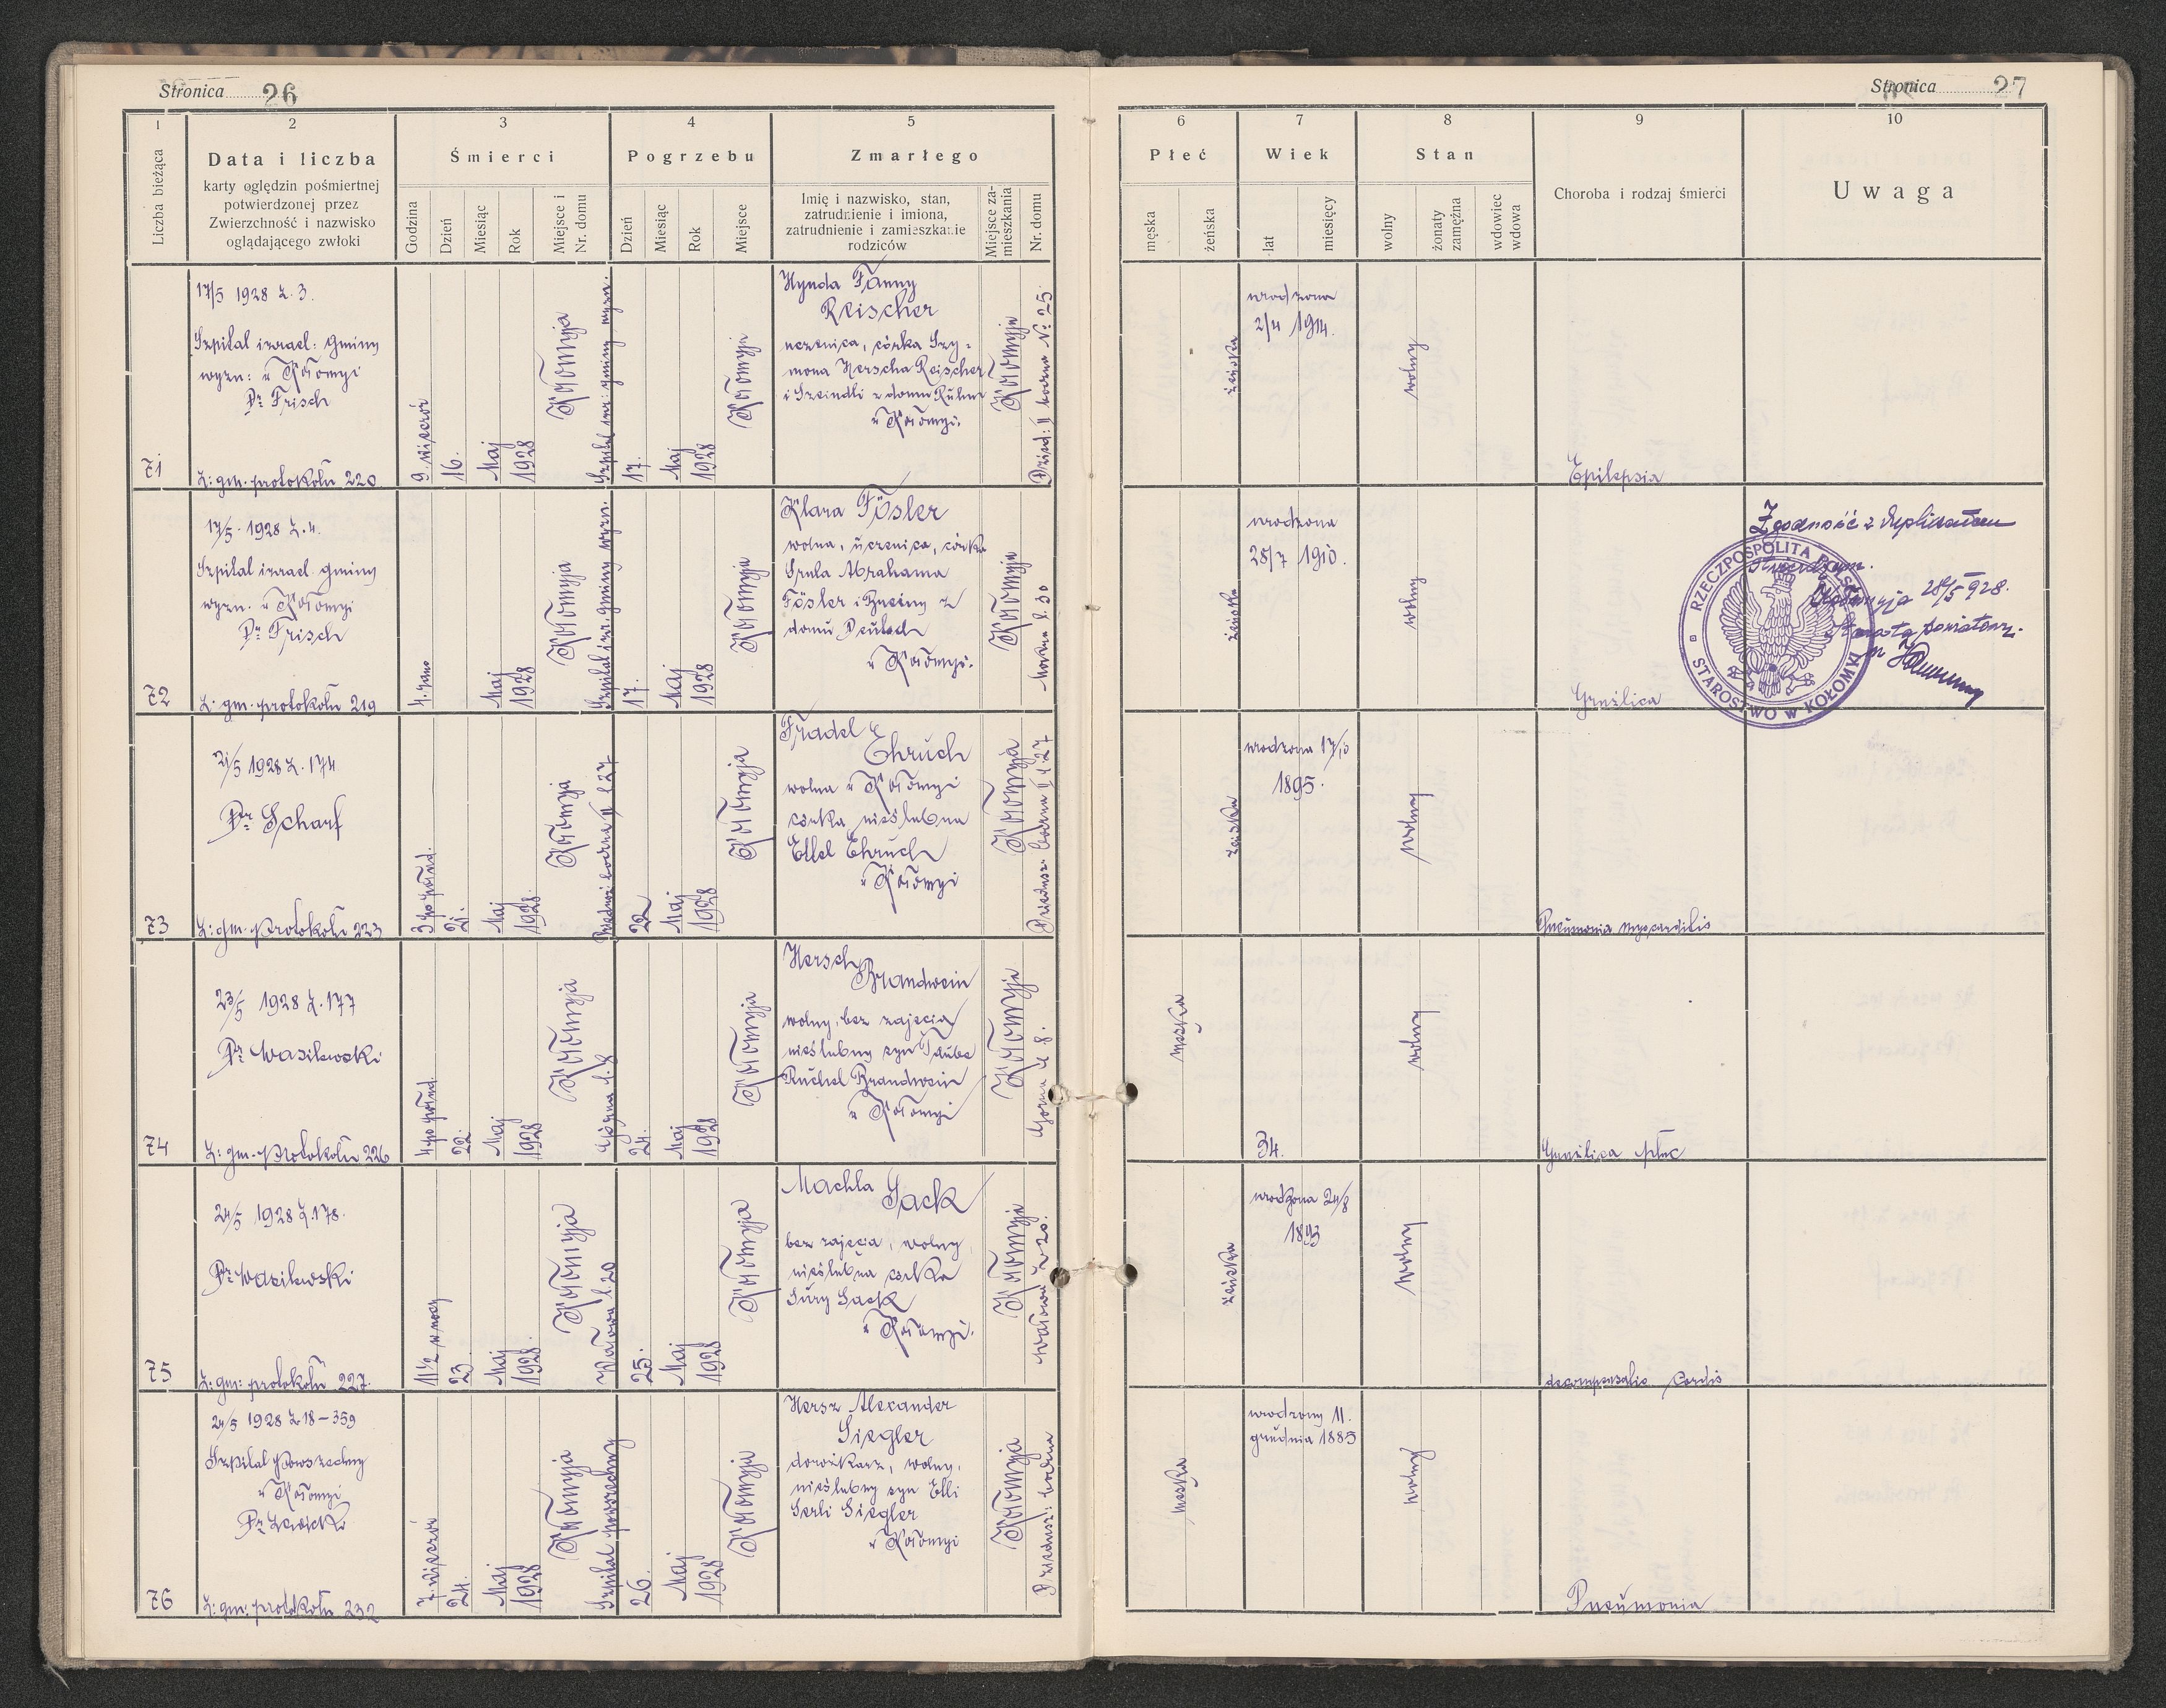 Stronica 26
Stronica 27
1 2 3 4 5 6 7 8 9 10
Liczba bieżąca
Data i liczba
karty oględzin pośmiertnej
potwierdzonej przez
Zwierzchność i nazwisko
oglądającego zwłoki
Śmierci
Godzina
Dzień
Miesiąc
Rok
Miejsce i
Nr. domu
Pogrzebu
Dzień
Miesiąc
Rok
Miejsce
Zmarłego
Imię i nazwisko, stan,
zatrudnienie i imiona,
zatrudnienie i zamieszkanie
rodziców
Miejsce za-
mieszkania
Nr. domu
Płeć
męska
żeńska
Wiek
lat
miesięcy
Stan
wolny
żonaty
zamężna
wdowiec
wdowa
Choroba i rodzaj śmierci
Uwaga
71
17/5 1928 L. 3.
Szpital izrael: gminy
wyzn: w Kołomyi
Dr Frisch
L: gm. protokołu 220
9. wieczór
16.
Maj
1928
Kołomyja
Szpital izr: gminy wyzn.
17.
Maj
1928
Kołomyja
Hynda Fanny
Reischer
uczenica, córka Szy=
mona Herscha Reischer
i Szeindli z domu
w Kołomyi.
Kołomyja
№ 25
żeńska
urodzona
2/4 1914.
wolny
Epilepsia
72
17/5 1928 L. 4.
Szpital izrael. gminy
wyzn. w Kołomyi
Dr Frisch
L. gm. protokołu 219
4. rano
Maj
1928
Kołomyja
Szpital izr. gminy wyzn.
17.
Maj
1928
Kołomyja
Klara Fösler
wolna, uczenica, córka
Srula Abrahama
Fösler i z
domu
w Kołomyi.
Kołomyja
l. 30
żeńska
urodzona
28/7 1910.
wolny
Gruźlica
Zgodność z duplikatem
stwierdzam.
Kołomyja 28/5 928.
Starosta powiatowy.
RZECZPOSPOLITA POLSKA
STAROSTWO w KOŁOMYI
73
21/5 1928 L. 174
Dr Scharf
L: gm. protokołu 223
3 po połud.
21.
Maj
1928.
Kołomyja
22
Maj
1928
Kołomyja
Fradel
Ehruch
wolna w Kołomyi
córka nieślubna
Ettel Ehruch
w Kołomyi
Kołomyja
żeńska
urodzona 17/10
1895.
wolny
Pneumonia myocarditis
74
23/5 1928 L. 177
Dr Wasilewski
L: gm. protokołu 226
4 po połud.
22.
Maj
1928
Kołomyja
Górna l. 8
24.
Maj
1928
Kołomyja
Hersch
Brandwein
wolny, bez zajęcia
nieślubny syn Taube
Ruchel Brandwein
w Kołomyi
Kołomyja
Górna l. 8.
męska
34.
wolny
Gruźlica płuc
75
24/5 1928 L. 178.
Dr Wasilewski
L: gm: protokołu 227.
11½ w nocy
23.
Maj
1928.
Kołomyja
Wałowa l. 20
25.
Maj
1928
Kołomyja
Machla Sack
bez zajęcia, wolny
nieślubna córka
Sury Sack
w Kołomyi.
Kołomyja
Wałowa L 20.
żeńska
urodzona 24/8
1893
wolny
decompensatio Cordis
76
24/5 1928 L 18-359
Szpital powszechny
w Kołomyi
Dr Lewicki
L: gm: protokołu 232
7. wieczór
24.
Maj
1928
Kołomyja
Szpital powszechny
26.
Maj
1928
Kołomyja
Hersz Alexander
Siegler
dorożkarz, wolny,
nieślubny syn Etli
Serli Siegler
w Kołomyi
Kołomyja
męska
urodzony 11.
grudnia 1885
wolny
Pneumonia